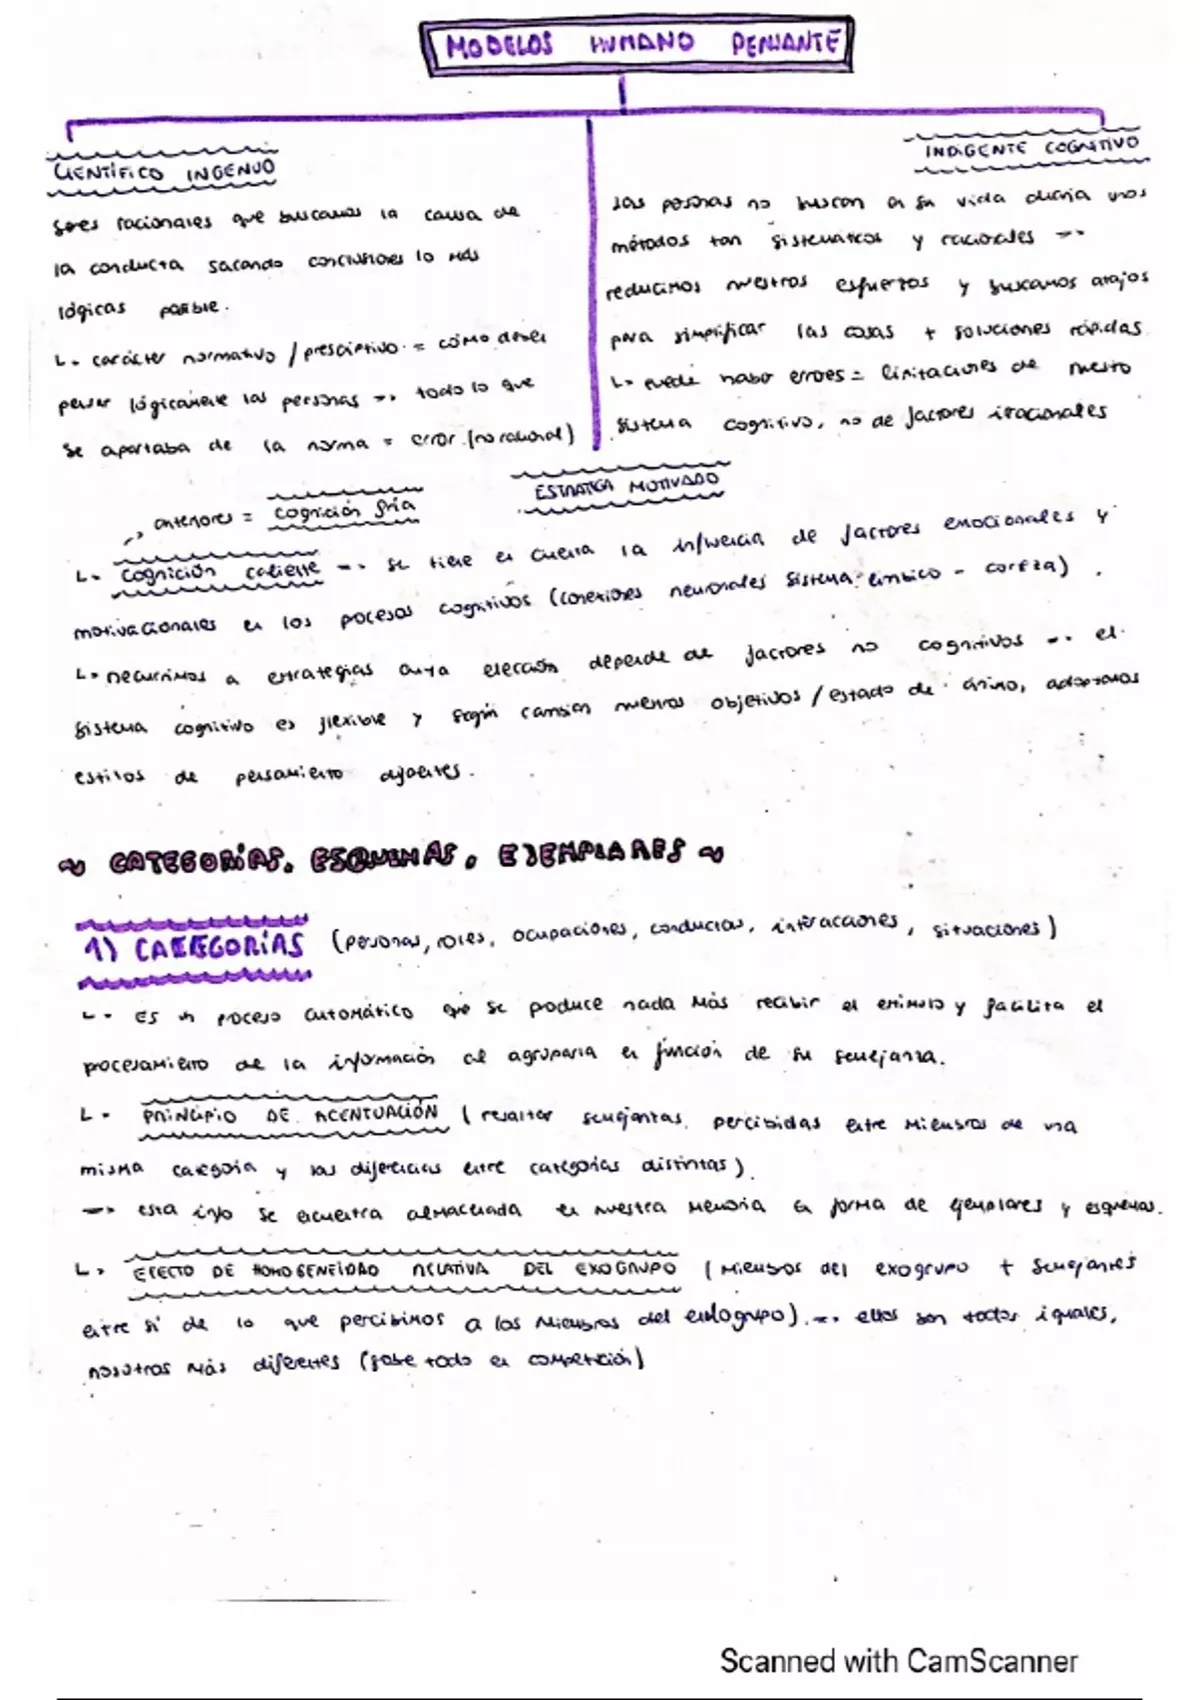 MODELOS HUMANO PENSANTE
CIENTÍFICO INGENUO
Seres racionales que buscamos la causa de
la conducta sacando conclusiones lo más
lógicas posible.
L→ carácter normativo / prescriptivo = cómo deben
pensar lógicamente las personas → todo lo que
se apartaba de la norma = error (no racional)
INDIGENTE COGNITIVO
Las personas no buscan en su vida diaria unos
métodos tan sistemáticos y racionales →
reducimos nuestros esfuerzos y buscamos atajos
para simplificar las cosas + soluciones rápidas
L→ puede haber errores = limitaciones de nuestro
sistema cognitivo, no de factores irracionales
ESTRATEGA MOTIVADO
→ anteriores = cognición fría
L→ cognición caliente → se tiene en cuenta la influencia de factores emocionales y
motivacionales en los procesos cognitivos (conexiones neuronales sistema límbico - corteza).
L→ recurrimos a estrategias cuya elección depende de factores no cognitivos → el
sistema cognitivo es flexible y según cambien nuestros objetivos / estado de ánimo, adoptamos
estilos de pensamiento diferentes.
~ CATEGORÍAS, ESQUEMAS, EJEMPLARES ~
1) CATEGORÍAS (personas, roles, ocupaciones, conductas, interacciones, situaciones)
L→ Es un proceso automático que se produce nada más recibir el estímulo y facilita el
procesamiento de la información al agruparla en función de su semejanza.
L→ PRINCIPIO DE ACENTUACIÓN (resaltar semejanzas percibidas entre miembros de una
misma categoría y las diferencias entre categorías distintas).
→ esta info se encuentra almacenada en nuestra memoria en forma de ejemplares y esquemas.
L→ EFECTO DE HOMOGENEIDAD RELATIVA DEL EXOGRUPO (miembros del exogrupo + semejantes
entre sí de lo que percibimos a los miembros del endogrupo). → ellos son todos iguales,
nosotros más diferentes (sobre todo en competición)
Scanned with CamScanner